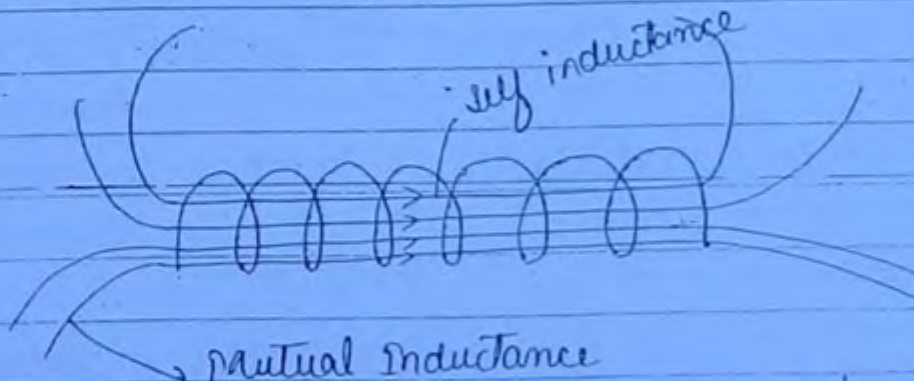 self inductance
Mutual Inductance